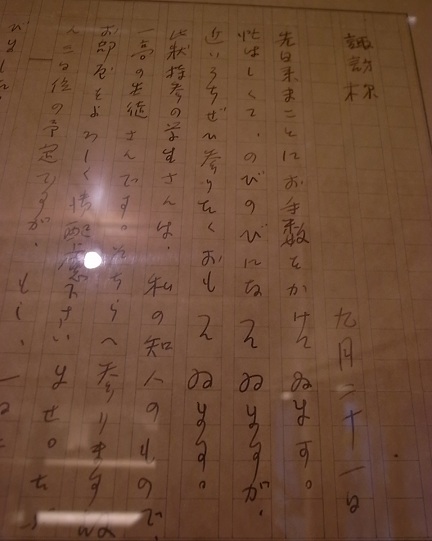 諏訪様
九月二十一日
先日来まことにお手数をかけてゐます。
忙はしくて、のびのびになてゐますが、
近いうちぜひ参りたくおもてゐます。
此状持参の学生さんは、私の知人のもので、
一高の生徒さんです。そちらへ参ります
お部屋をよろしく御配慮下さいませ。
二三日位の予定ですが、もし、一